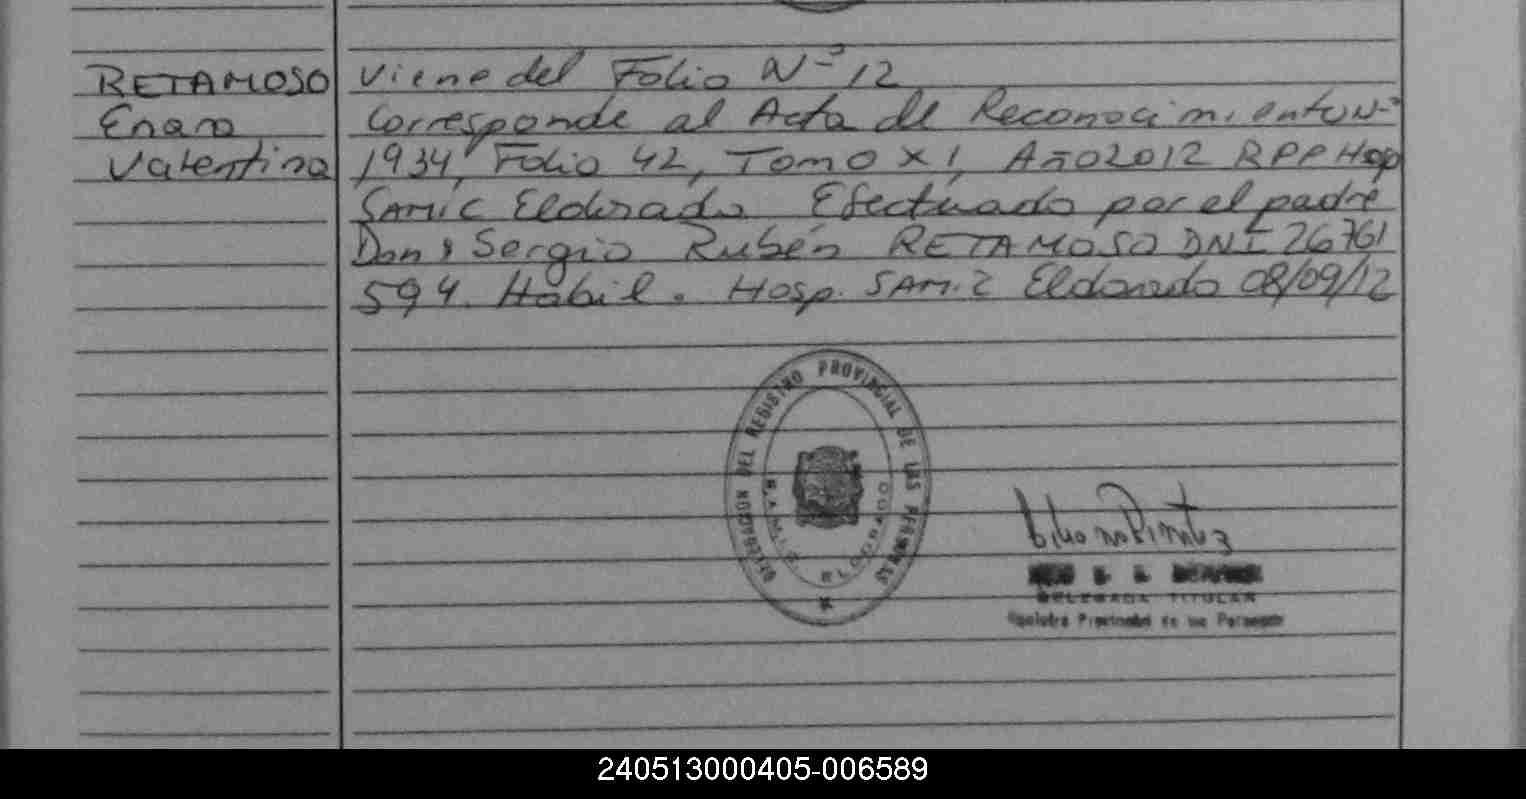 RETAMOSO
Enara
Valentina
Viene del Folio N° 12
Corresponde al Acta de Reconocimiento N°
1934, Folio 42, Tomo XI, Año 2012 RPP Hosp
SAMIC Eldorado Efectuado por el padre
Don: Sergio Rubén RETAMOSO DNI 26761
594. Habil. Hosp. SAMIC Eldorado 08/09/12
DELEGACION DEL REGISTRO PROVINCIAL DE LAS PERSONAS
S.A.M.I.C. ELDORADO
DELEGADA TITULAR
Registro Provincial de las Personas
240513000405-006589